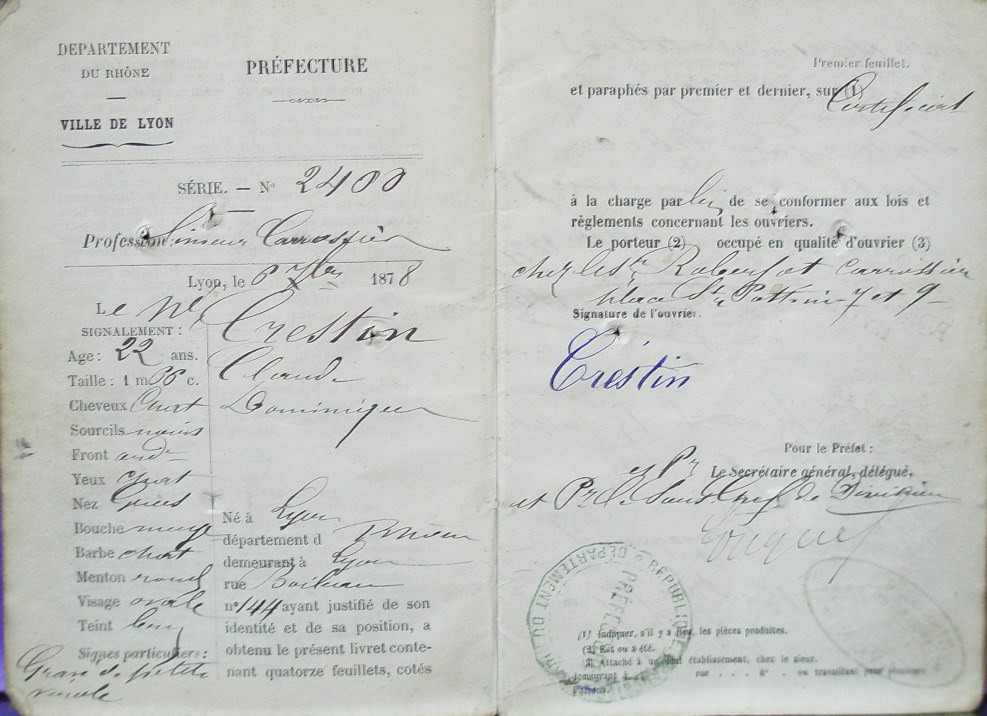 DEPARTEMENT
DU RHÔNE
VILLE DE LYON
PRÉFECTURE
SÉRIE. — N° 2400
Profession: Limeur Carrossier
Lyon, le 6 7bre 1878
Le Né
SIGNALEMENT:
Crestin
Age: 22 ans.
Taille: 1 m 66 c.
Claude
Cheveux Chat
Dominique
Sourcils noirs
Front
Yeux Chat
Nez
Bouche moye
Barbe chat
Menton rond
Visage ovale
Teint
Signes particuliers:
de petite
verole
Né à Lyon
département d Rhône
demeurant à Lyon
rue Boileau
n° 144 ayant justifié de son
identité et de sa position, a
obtenu le présent livret conte-
nant quatorze feuillets, cotés
Premier feuillet.
et paraphés par premier et dernier, sur (1)
Certificat
à la charge par lui de se conformer aux lois et
règlements concernant les ouvriers.
Le porteur (2) occupé en qualité d'ouvrier (3)
chez le Sr carrossier
place St 7 et 9
Signature de l'ouvrier.
Crestin
Pour le Préfet:
et Pr Le Secrétaire général, délégué,
et Pr Le Sous Chef de Division
RÉPUBLIQUE
PRÉFECTURE
DÉPARTEMENT DU
(1) Indiquer, s'il y a lieu, les pièces produites.
(2) Est ou a été.
(3) Attaché à un seul établissement, chez le sieur.
demeurant à rue . . . n° . . ou travaillant pour plusieurs
Patrons.